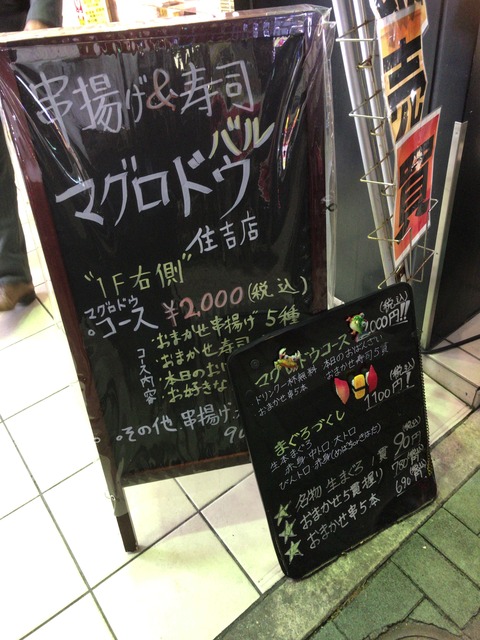 串揚げ&寿司
バル
マグロドウ
住吉店
"1F右側"
マグロドウ
。コース ¥2,000(税込)
コース内容
・おまかせ串揚げ5種
・おまかせ寿司
・本日のお
・お好きな
。その他、串揚げ
マグロドウコース (税込) 2,000円!!
ドリンク一杯無料 本日のおばんざい
おまかせ串5本 おまかせ寿司5貫
まぐろづくし (税込) 1,100円!
生本まぐろ
赤身 中トロ 大トロ
名物 生まぐろ1貫 90円
おまかせ5貫握り 780円(税込)
おまかせ串5本 690円(税込)